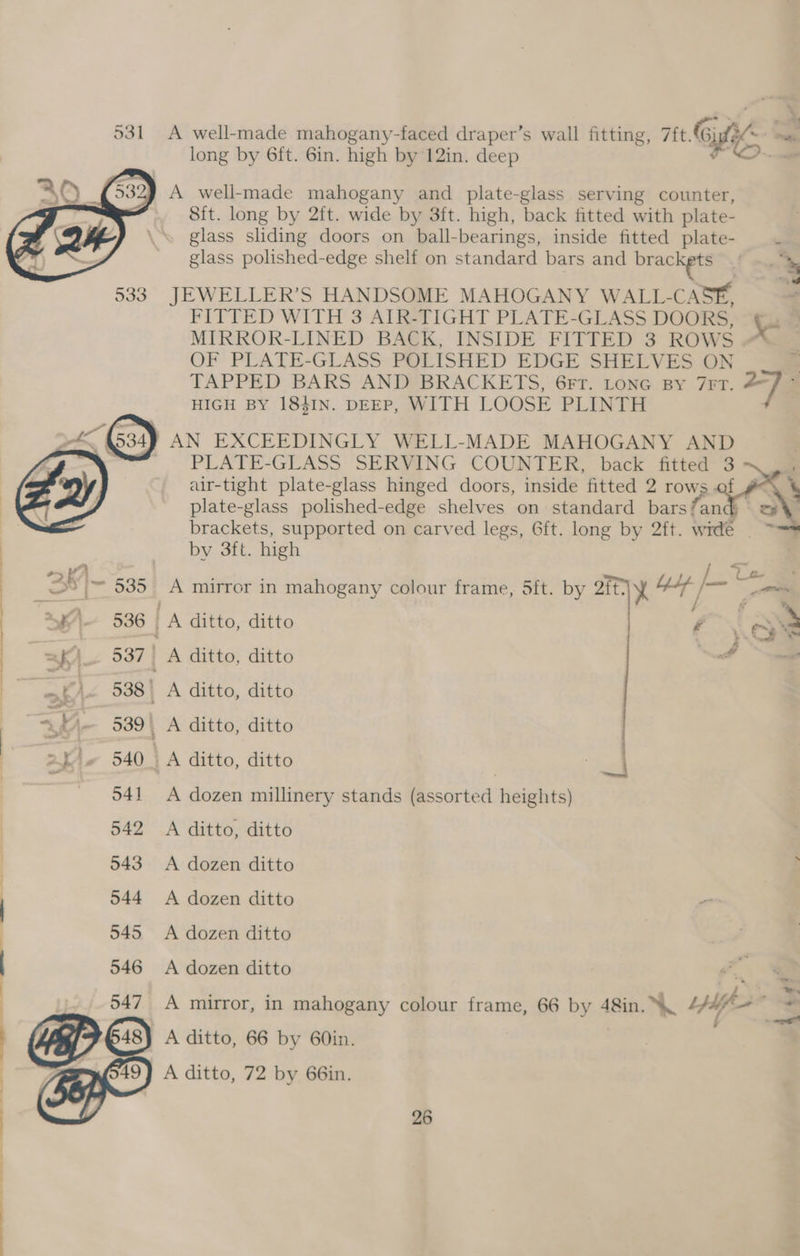 531 A well-made mahogany-faced draper's wall fitting, 7ft. 6in.
long by 6ft. 6in. high by 12in. deep
30 532 A well-made mahogany and plate-glass serving counter,
8ft. long by 2ft. wide by 3ft. high, back fitted with plate-
glass sliding doors on ball-bearings, inside fitted plate-
glass polished-edge shelf on standard bars and brackets
533 JEWELLER'S HANDSOME MAHOGANY WALL-CASE,
FITTED WITH 3 AIR-TIGHT PLATE-GLASS DOORS,
MIRROR-LINED BACK, INSIDE FITTED 3 ROWS
OF PLATE-GLASS POLISHED EDGE SHELVES ON
TAPPED BARS AND BRACKETS, 6FT. LONG BY 7FT.
HIGH BY 18½IN. DEEP, WITH LOOSE PLINTH
534 AN EXCEEDINGLY WELL-MADE MAHOGANY AND
PLATE-GLASS SERVING COUNTER, back fitted 3
air-tight plate-glass hinged doors, inside fitted 2 rows of
plate-glass polished-edge shelves on standard bars and
brackets, supported on carved legs, 6ft. long by 2ft. wide
by 3ft. high
535 A mirror in mahogany colour frame, 5ft. by 2ft.
536 A ditto, ditto
537 A ditto, ditto
538 A ditto, ditto
539 A ditto, ditto
540 A ditto, ditto
541 A dozen millinery stands (assorted heights)
542 A ditto, ditto
543 A dozen ditto
544 A dozen ditto
545 A dozen ditto
546 A dozen ditto
547 A mirror, in mahogany colour frame, 66 by 48in.
548 A ditto, 66 by 60in.
549 A ditto, 72 by 66in.
26